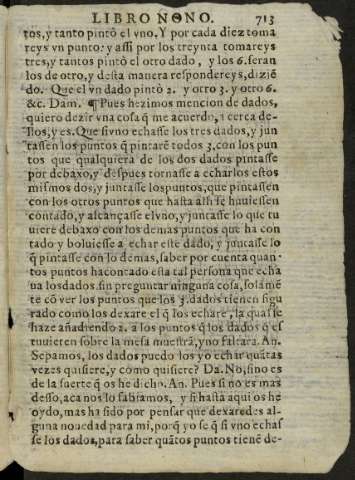 LIBRO NONO. 713
tos, y tanto pintò el vno. Y por cada diez toma
reys vn punto: y assi por los treynta tomareys
tres, y tantos pintò el otro dado, y los 6. seran
los de otro, y desta manera respondereys, dizie
do. Que el vn dado pintò 2. y otro 3. y otro 6.
&c. Dam. ¶ Pues hezimos mencion de dados,
quiero dezir vna cosa q̃ me acuerdo, acerca de-
llos, y es. Que si vno echasse los tres dados, y jun
tassen los puntos q̃ pintarẽ todos 3. con los pun
tos que qualquiera de los dos dados pintasse
por debaxo, y despues tornasse a echar los estos
mismos dos, y juntasse los puntos, que pintassen
con los otros puntos que hasta alli se huuiessen
contado, y alcançasse el vno, y juntasse lo que tu
uiere debaxo con los demas puntos que ha con
tado y boluiesse a echar este dado, y juntasse lo
q̃ pintasse con lo demas, saber por cuenta quan
tos puntos ha contado esta tal persona que echa
ua los dados sin preguntar ninguna cosa, solamẽ
te cõ ver los puntos que los 3. dados tienen figu
rado como los dexare el q̃ los echare, la qual se
haze añadiendo 2. a los puntos q̃ los dados q̃ es
tuuieren sobre la mesa muestrã, y no faltara. An.
Sepamos, los dados puedo los yo echar quãtas
vezes quisiere, y como quisiere? Da. No, sino es
de la suerte q̃ os he dicho. An. Pues si no es mas
desso, aca nos lo sabiamos, y si hasta aqui os he
oydo, mas ha sido por pensar que dexaredes al-
guna nouedad para mi, porq̃ yo se q̃ si vno echas
se los dados, para saber quãtos puntos tienẽ de-